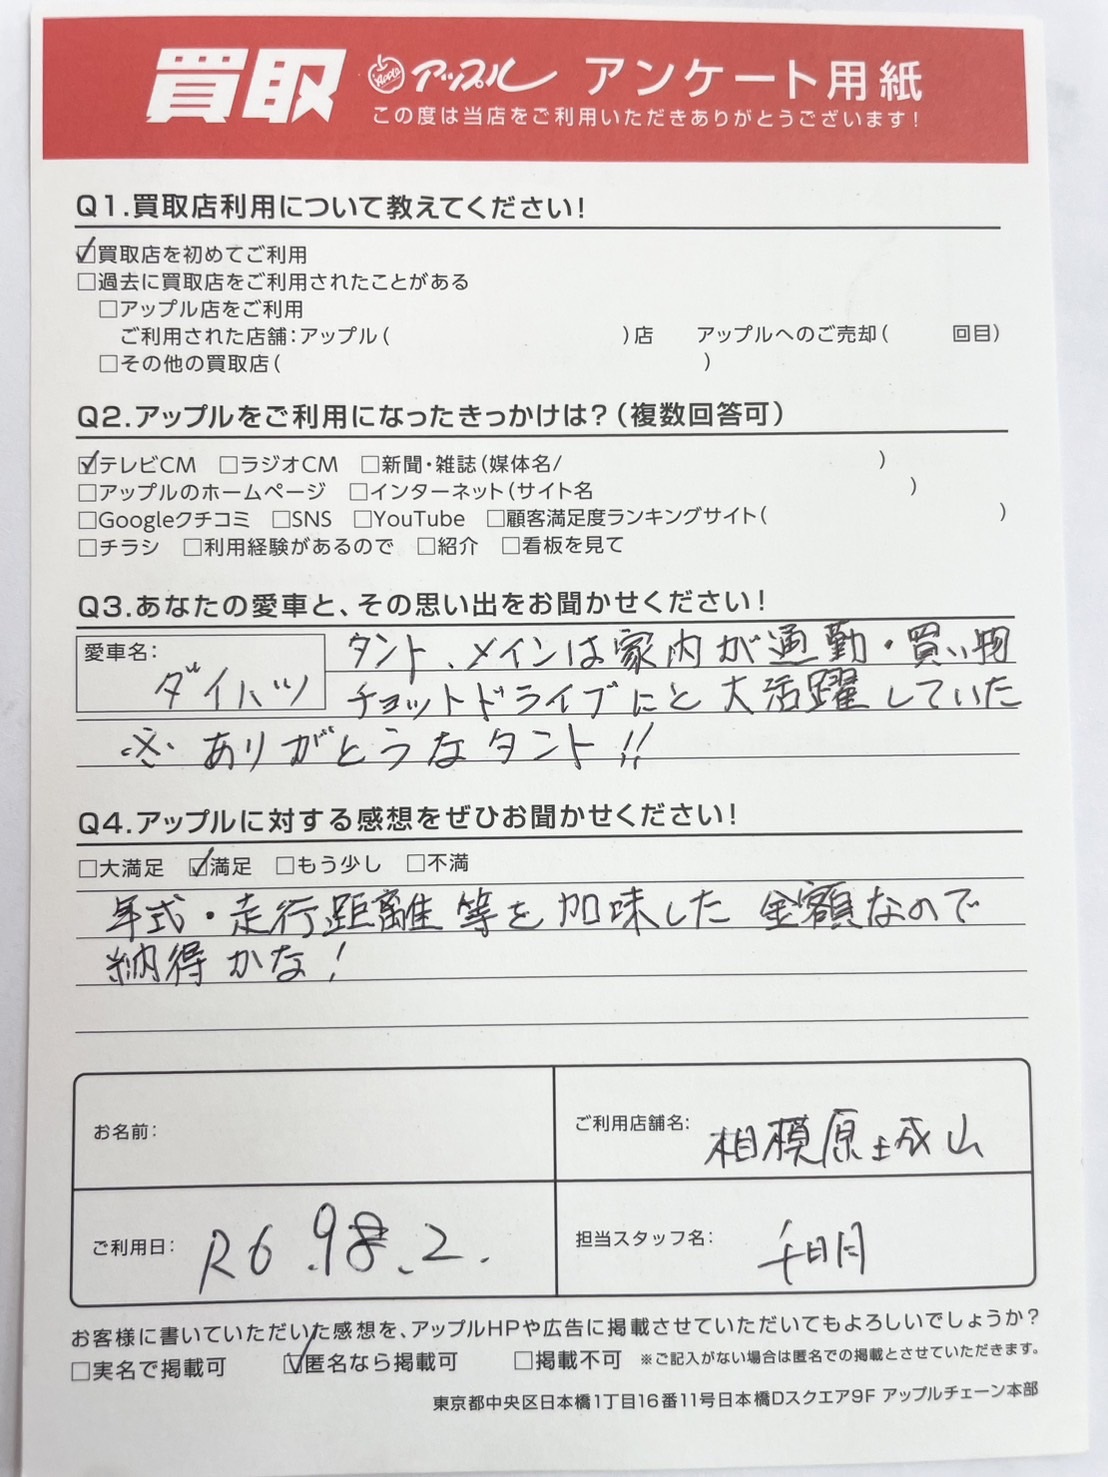 買取 アップル アンケート用紙
この度は当店をご利用いただきありがとうございます!
Q1.買取店利用について教えてください!
☑買取店を初めてご利用
□過去に買取店をご利用されたことがある
□アップル店をご利用
ご利用された店舗:アップル( )店 アップルへのご売却( 回目)
□その他の買取店( )
Q2.アップルをご利用になったきっかけは?(複数回答可)
☑テレビCM □ラジオCM □新聞・雑誌(媒体名/ )
□アップルのホームページ □インターネット(サイト名 )
□Googleクチコミ □SNS □YouTube □顧客満足度ランキングサイト( )
□チラシ □利用経験があるので □紹介 □看板を見て
Q3.あなたの愛車と、その思い出をお聞かせください!
愛車名: ダイハツ
タント、メインは家内が通勤・買い物
チョットドライブにと大活躍していた
ありがとうなタント!!
Q4.アップルに対する感想をぜひお聞かせください!
□大満足 ☑満足 □もう少し □不満
年式・走行距離等を加味した金額なので
納得かな!
お名前:
ご利用店舗名: 相模原
ご利用日: R6.9
担当スタッフ名:
お客様に書いていただいた感想を、アップルHPや広告に掲載させていただいてもよろしいでしょうか?
□実名で掲載可 ☑匿名なら掲載可 □掲載不可 ※ご記入がない場合は匿名での掲載とさせていただきます。
東京都中央区日本橋1丁目16番11号日本橋Dスクエア9F アップルチェーン本部